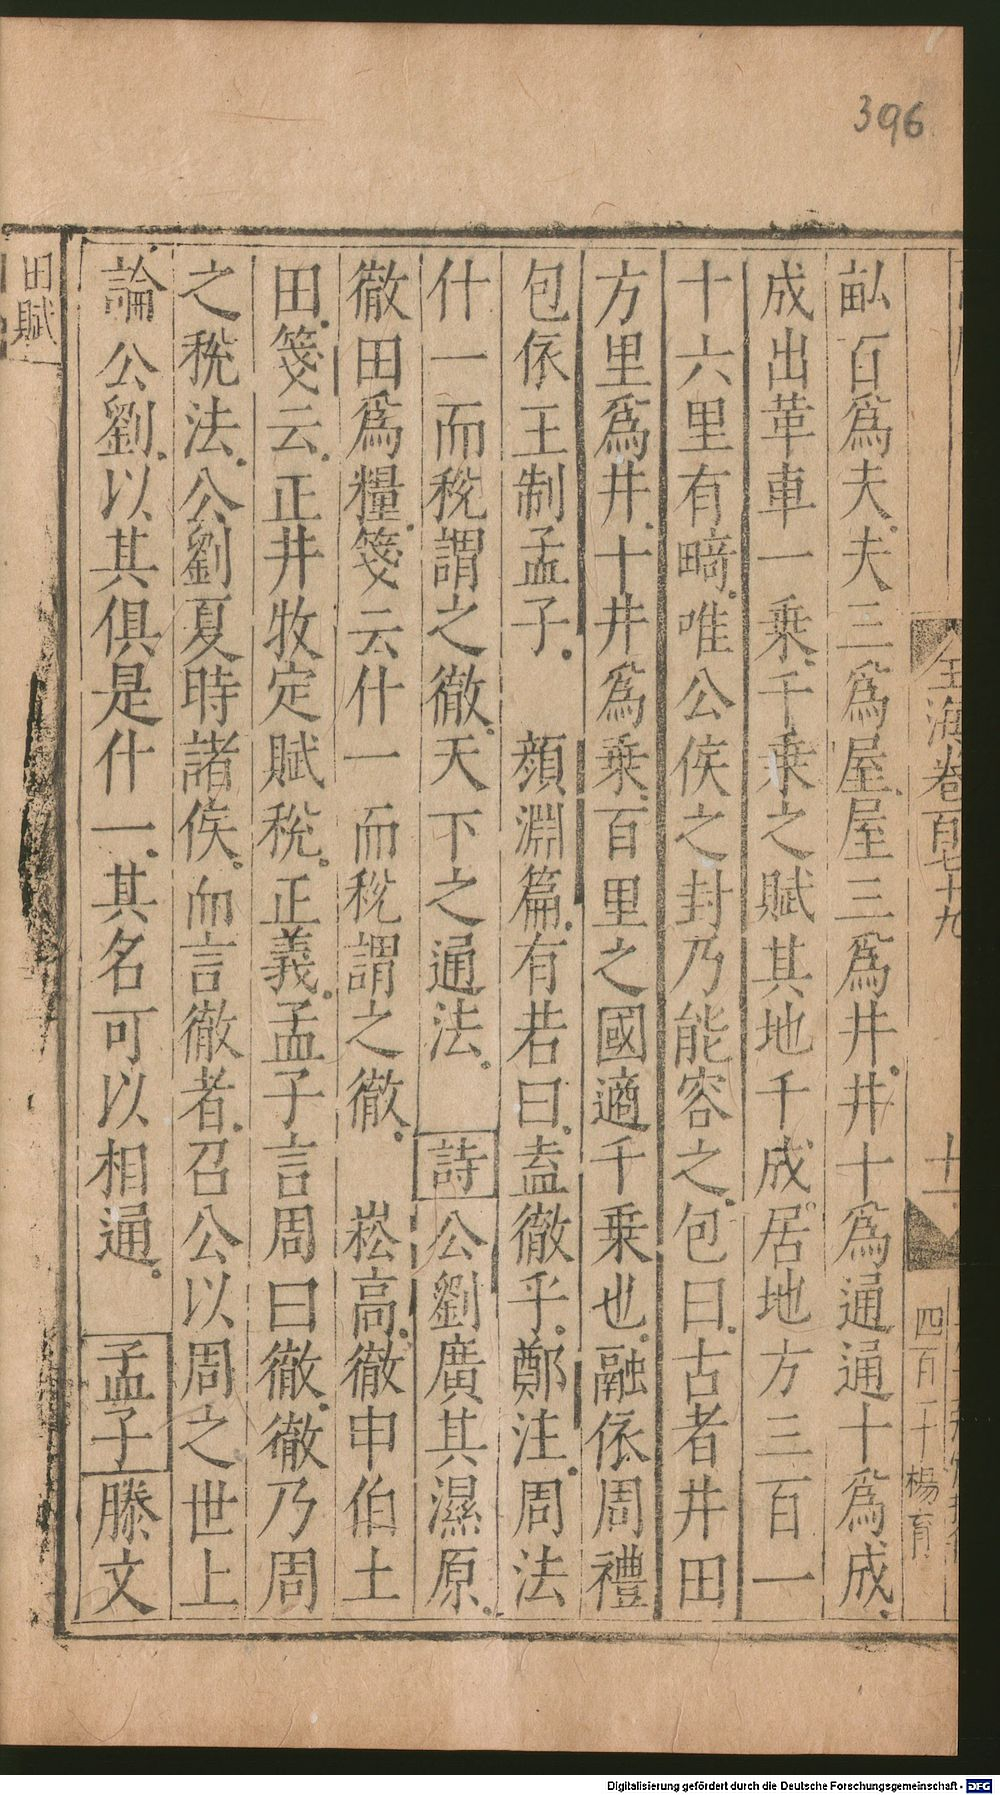 396
玉海卷百七十九
十一
四百一十
楊育
畝百爲夫。夫三爲屋。屋三爲井。井十爲通。通十爲成。
成出革車一乗。千乗之賦其地千成。居地方三百一
十六里有畸。唯公侯之封乃能容之。包曰。古者井田
方里爲井。十井爲乗。百里之國適千乗也。融依周禮
包依王制孟子。 顔淵篇。有若曰。盍徹乎。鄭注。周法
什一而稅謂之徹。天下之通法。 詩公劉廣其濕原。
徹田爲糧。箋云什一而稅謂之徹。 崧高。徹申伯土
田。箋云。正井牧定賦稅。正義。孟子言周曰徹。徹乃周
之稅法。公劉夏時諸侯。而言徹者。召公以周之世上
論公劉。以其俱是什一。其名可以相通。 孟子滕文
田賦
Digitalisierung gefördert durch die Deutsche Forschungsgemeinschaft - DFG